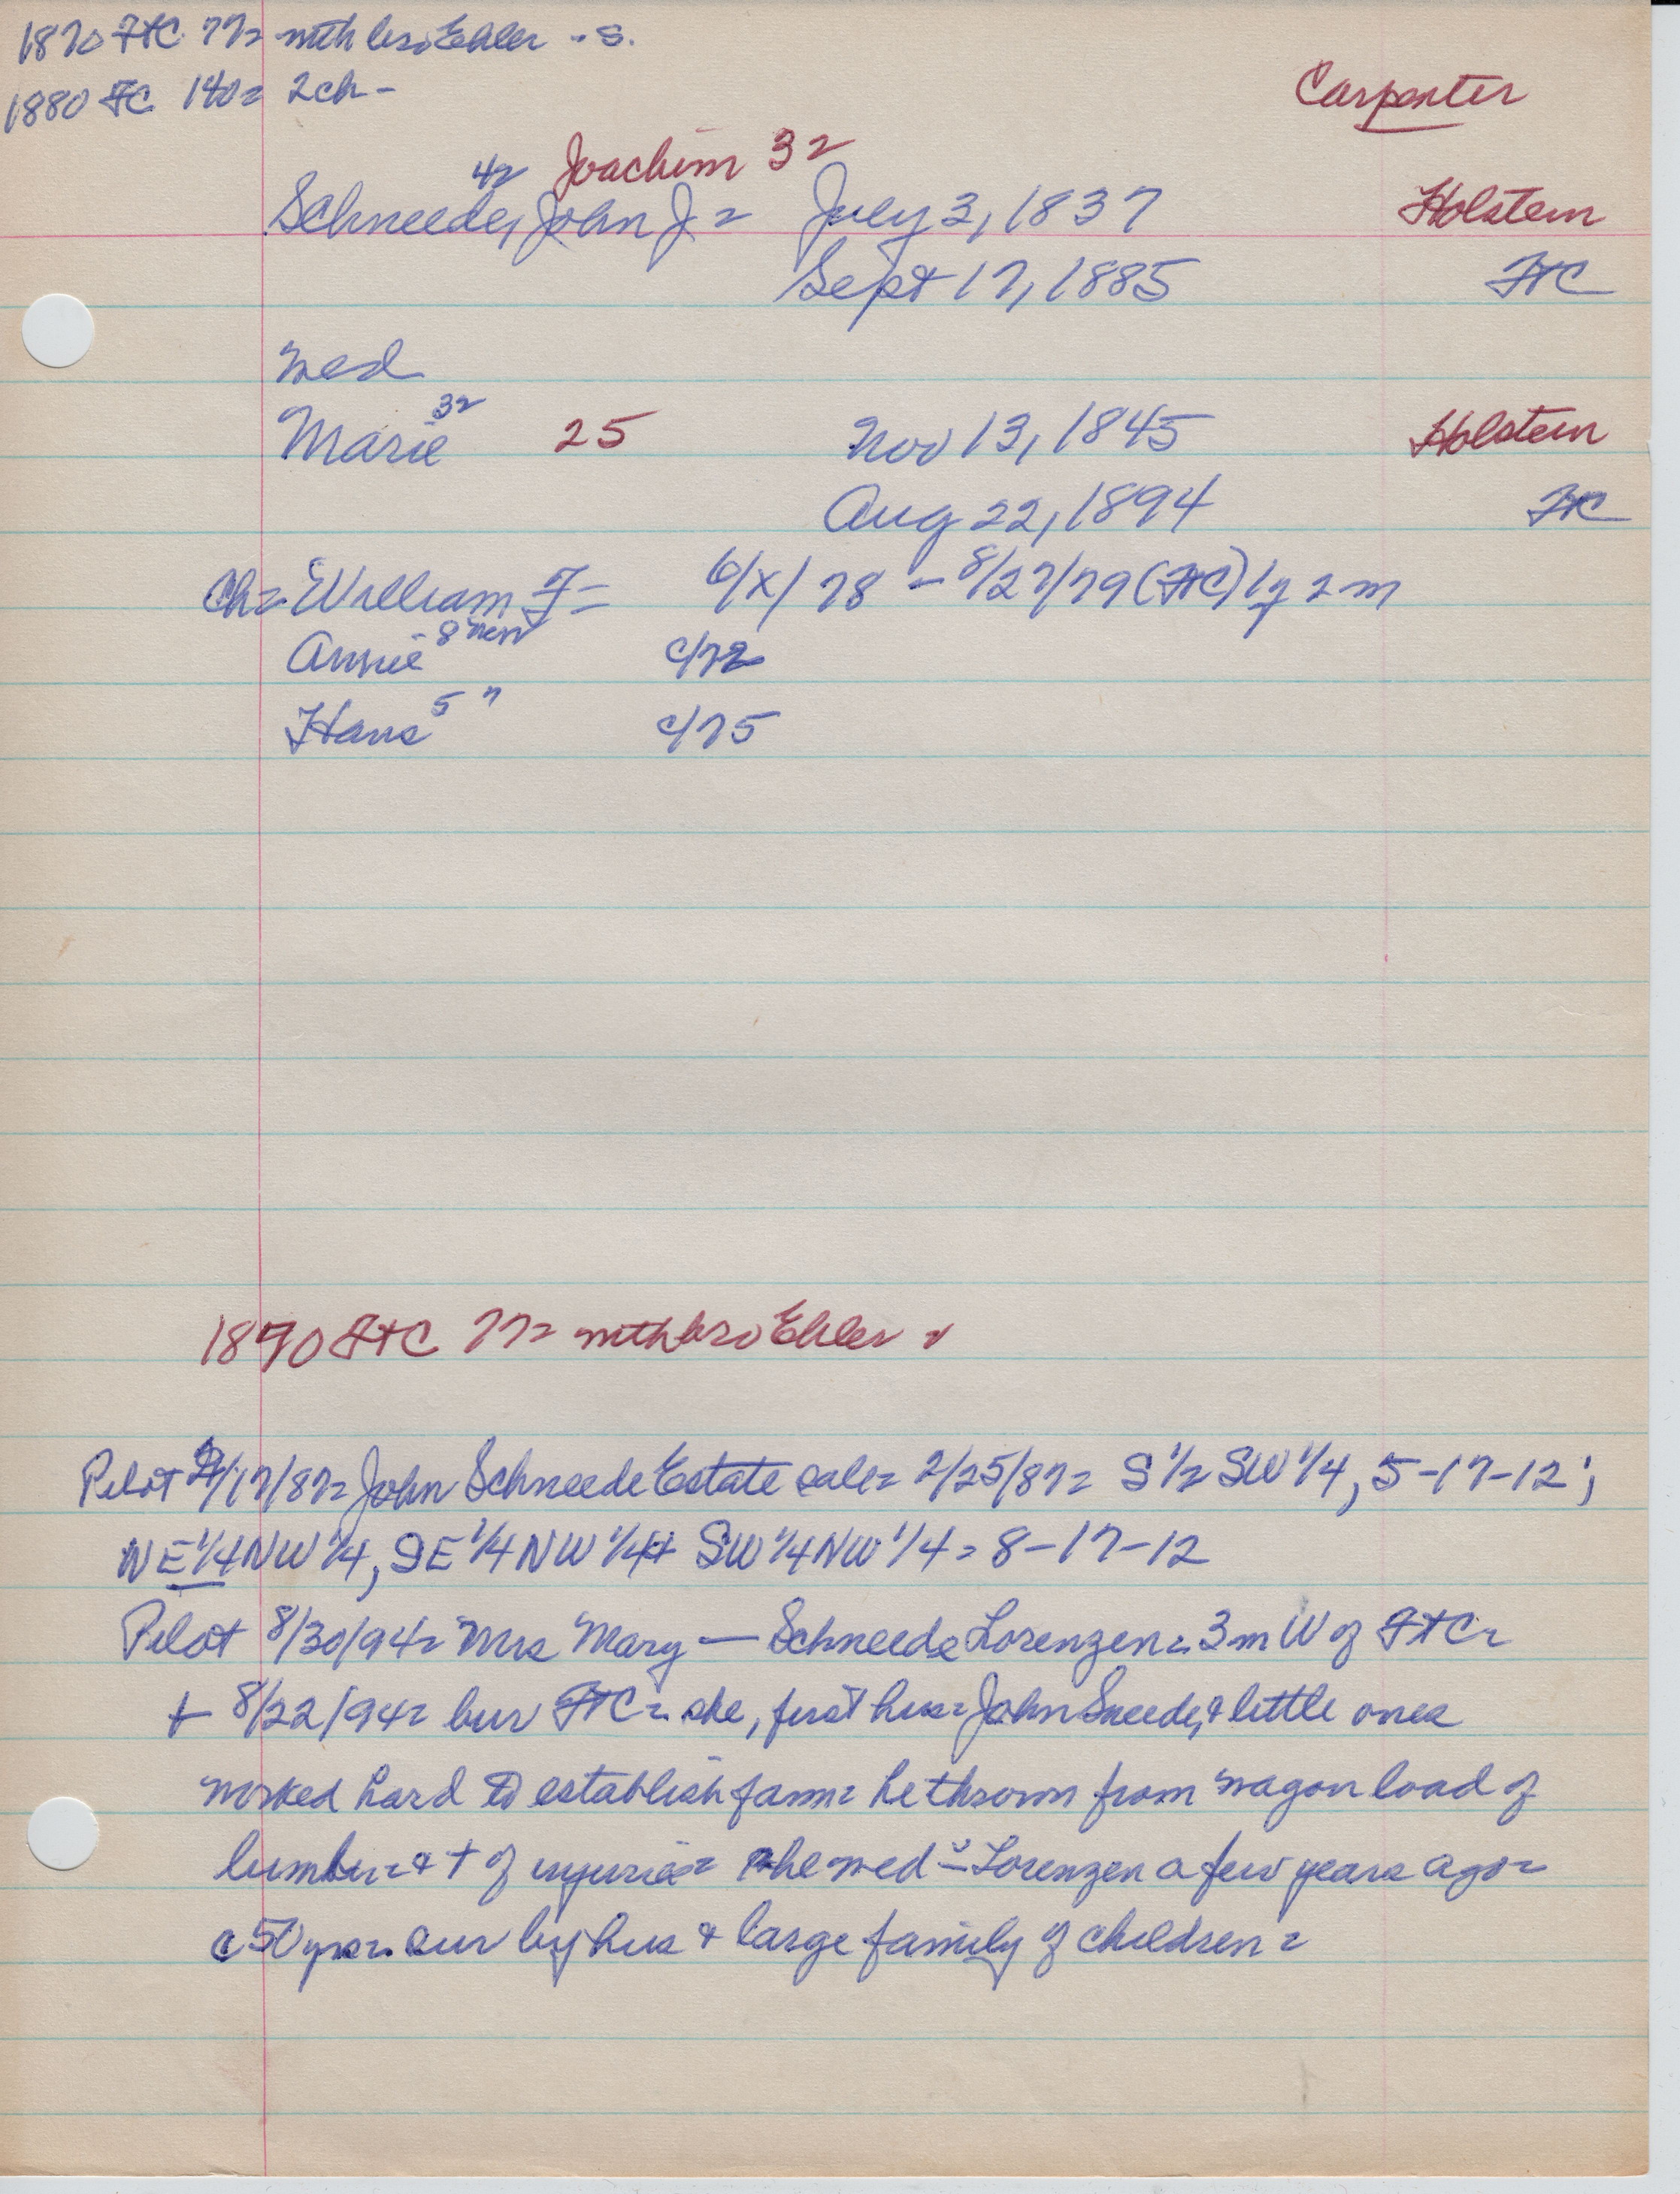 1870 FtC 77= with bro Ehler - s.
1880 FC 140= 2ch -
Carpenter
42 Joachim 32
Schneede, John J = July 3, 1837 Holstein
Sept 17, 1885 FtC
wed
Marie 32 25 Nov 13, 1845 Holstein
Aug 22, 1894 FtC
Ch= William F= 6/x/78 - 8/27/79 (FtC) 1y 2m
Annie 8 Neb c/72
Hans 5 " c/75
1870 FtC 77= with bro Ehler
Pilot 2/17/87= John Schneede Estate sale= 2/25/87= S 1/2 SW 1/4, 5-17-12;
NE 1/4 NW 1/4, SE 1/4 NW 1/4 + SW 1/4 NW 1/4 = 8-17-12
Pilot 8/30/94= Mrs Mary — Schneede Lorenzen= 3m W of FtC=
+ 8/22/94= bur FtC= she, first hus= John Sneede, & little ones
worked hard to establish farm= he thrown from wagon load of
lumber= & + of injuries= she wed - Lorenzen a few years ago=
c 50 yrs= sur by hus & large family of children=